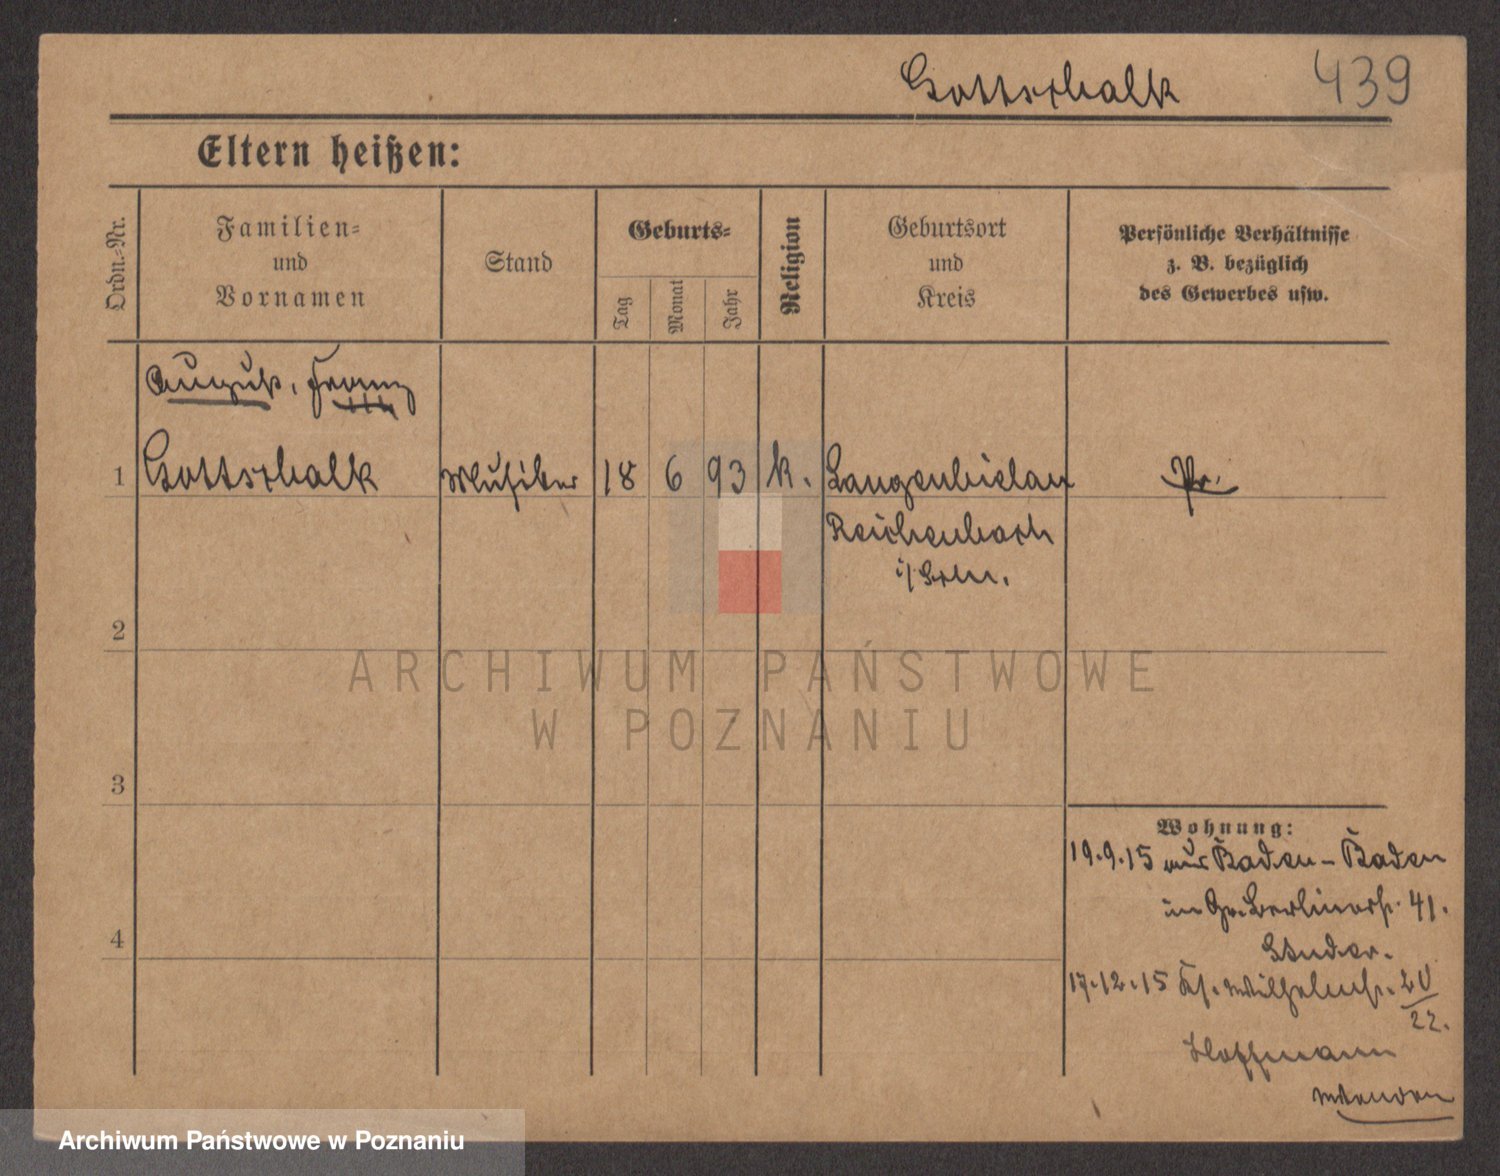 Gottschalk 439
Eltern heißen:
Ordn.=Nr.
Familien=
und
Vornamen
Stand
Geburts=
Tag
Monat
Jahr
Religion
Geburtsort
und
Kreis
Persönliche Verhältnisse
z. B. bezüglich
des Gewerbes usw.
August, Franz
1 Gottschalk Musiker 18 6 93 k. Langenbielau Pr.
Reichenbach
i/Schl.
2
3
4
Wohnung:
19.9.15 aus Baden-Baden
in Gr. Berlinerstr. 41.
Studer.
17.12.15 Ks. Wilhelmstr. 20/22.
Hoffmann
ARCHIWUM PAŃSTWOWE
W POZNANIU
Archiwum Państwowe w Poznaniu